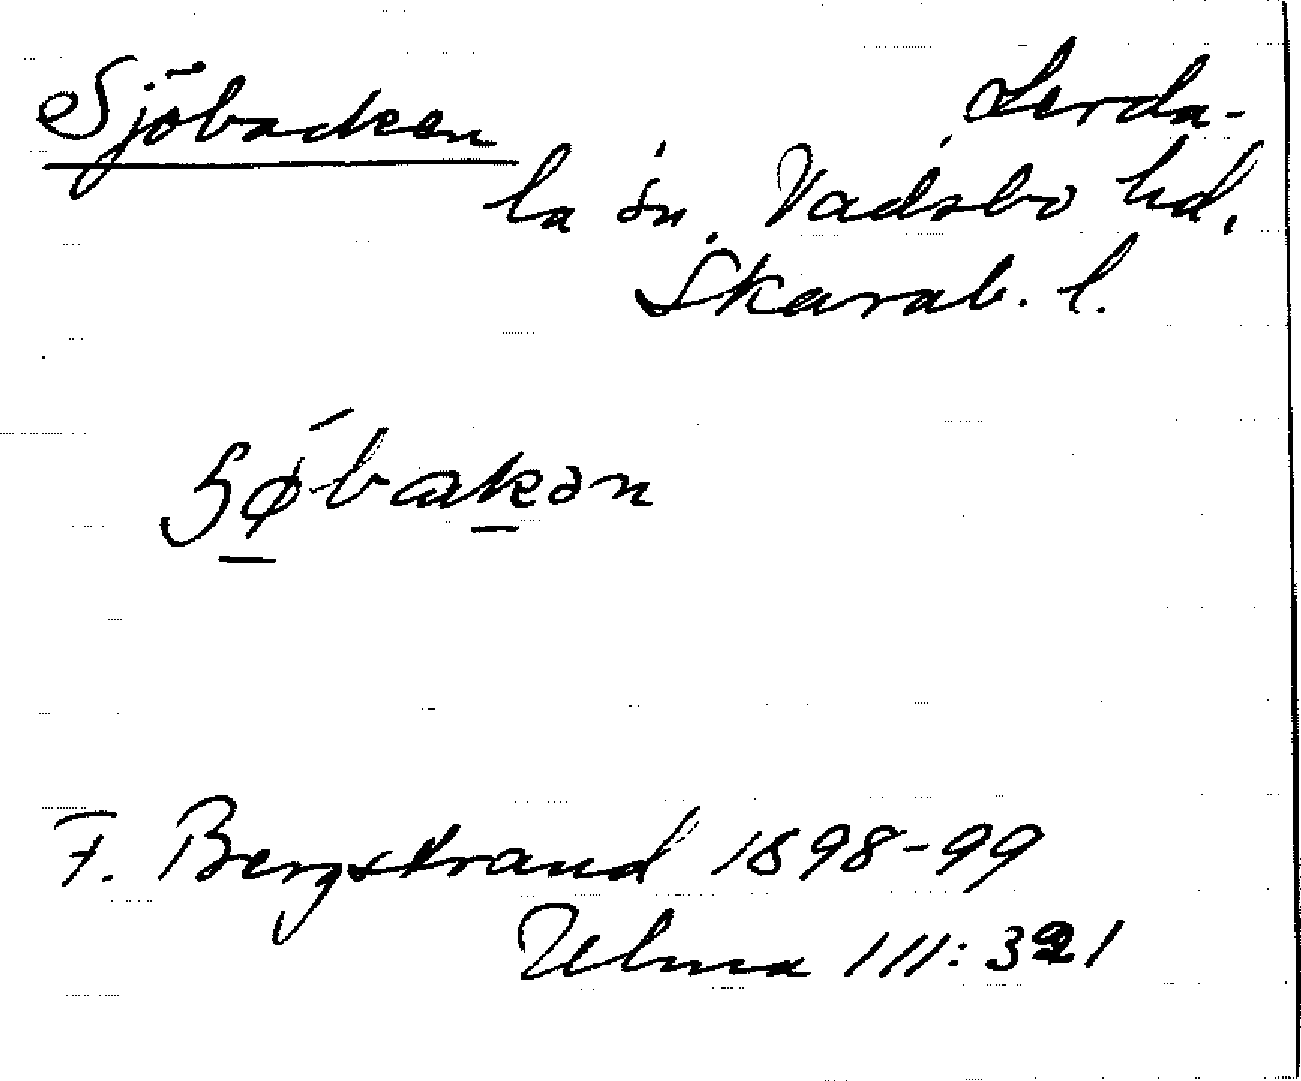 Sjöbacken Lerda-
la sn. Vadsbo hd.
Skarab. l.
Sǿ̱baḵən
F. Bergstrand 1898-99
Ulma 111:321